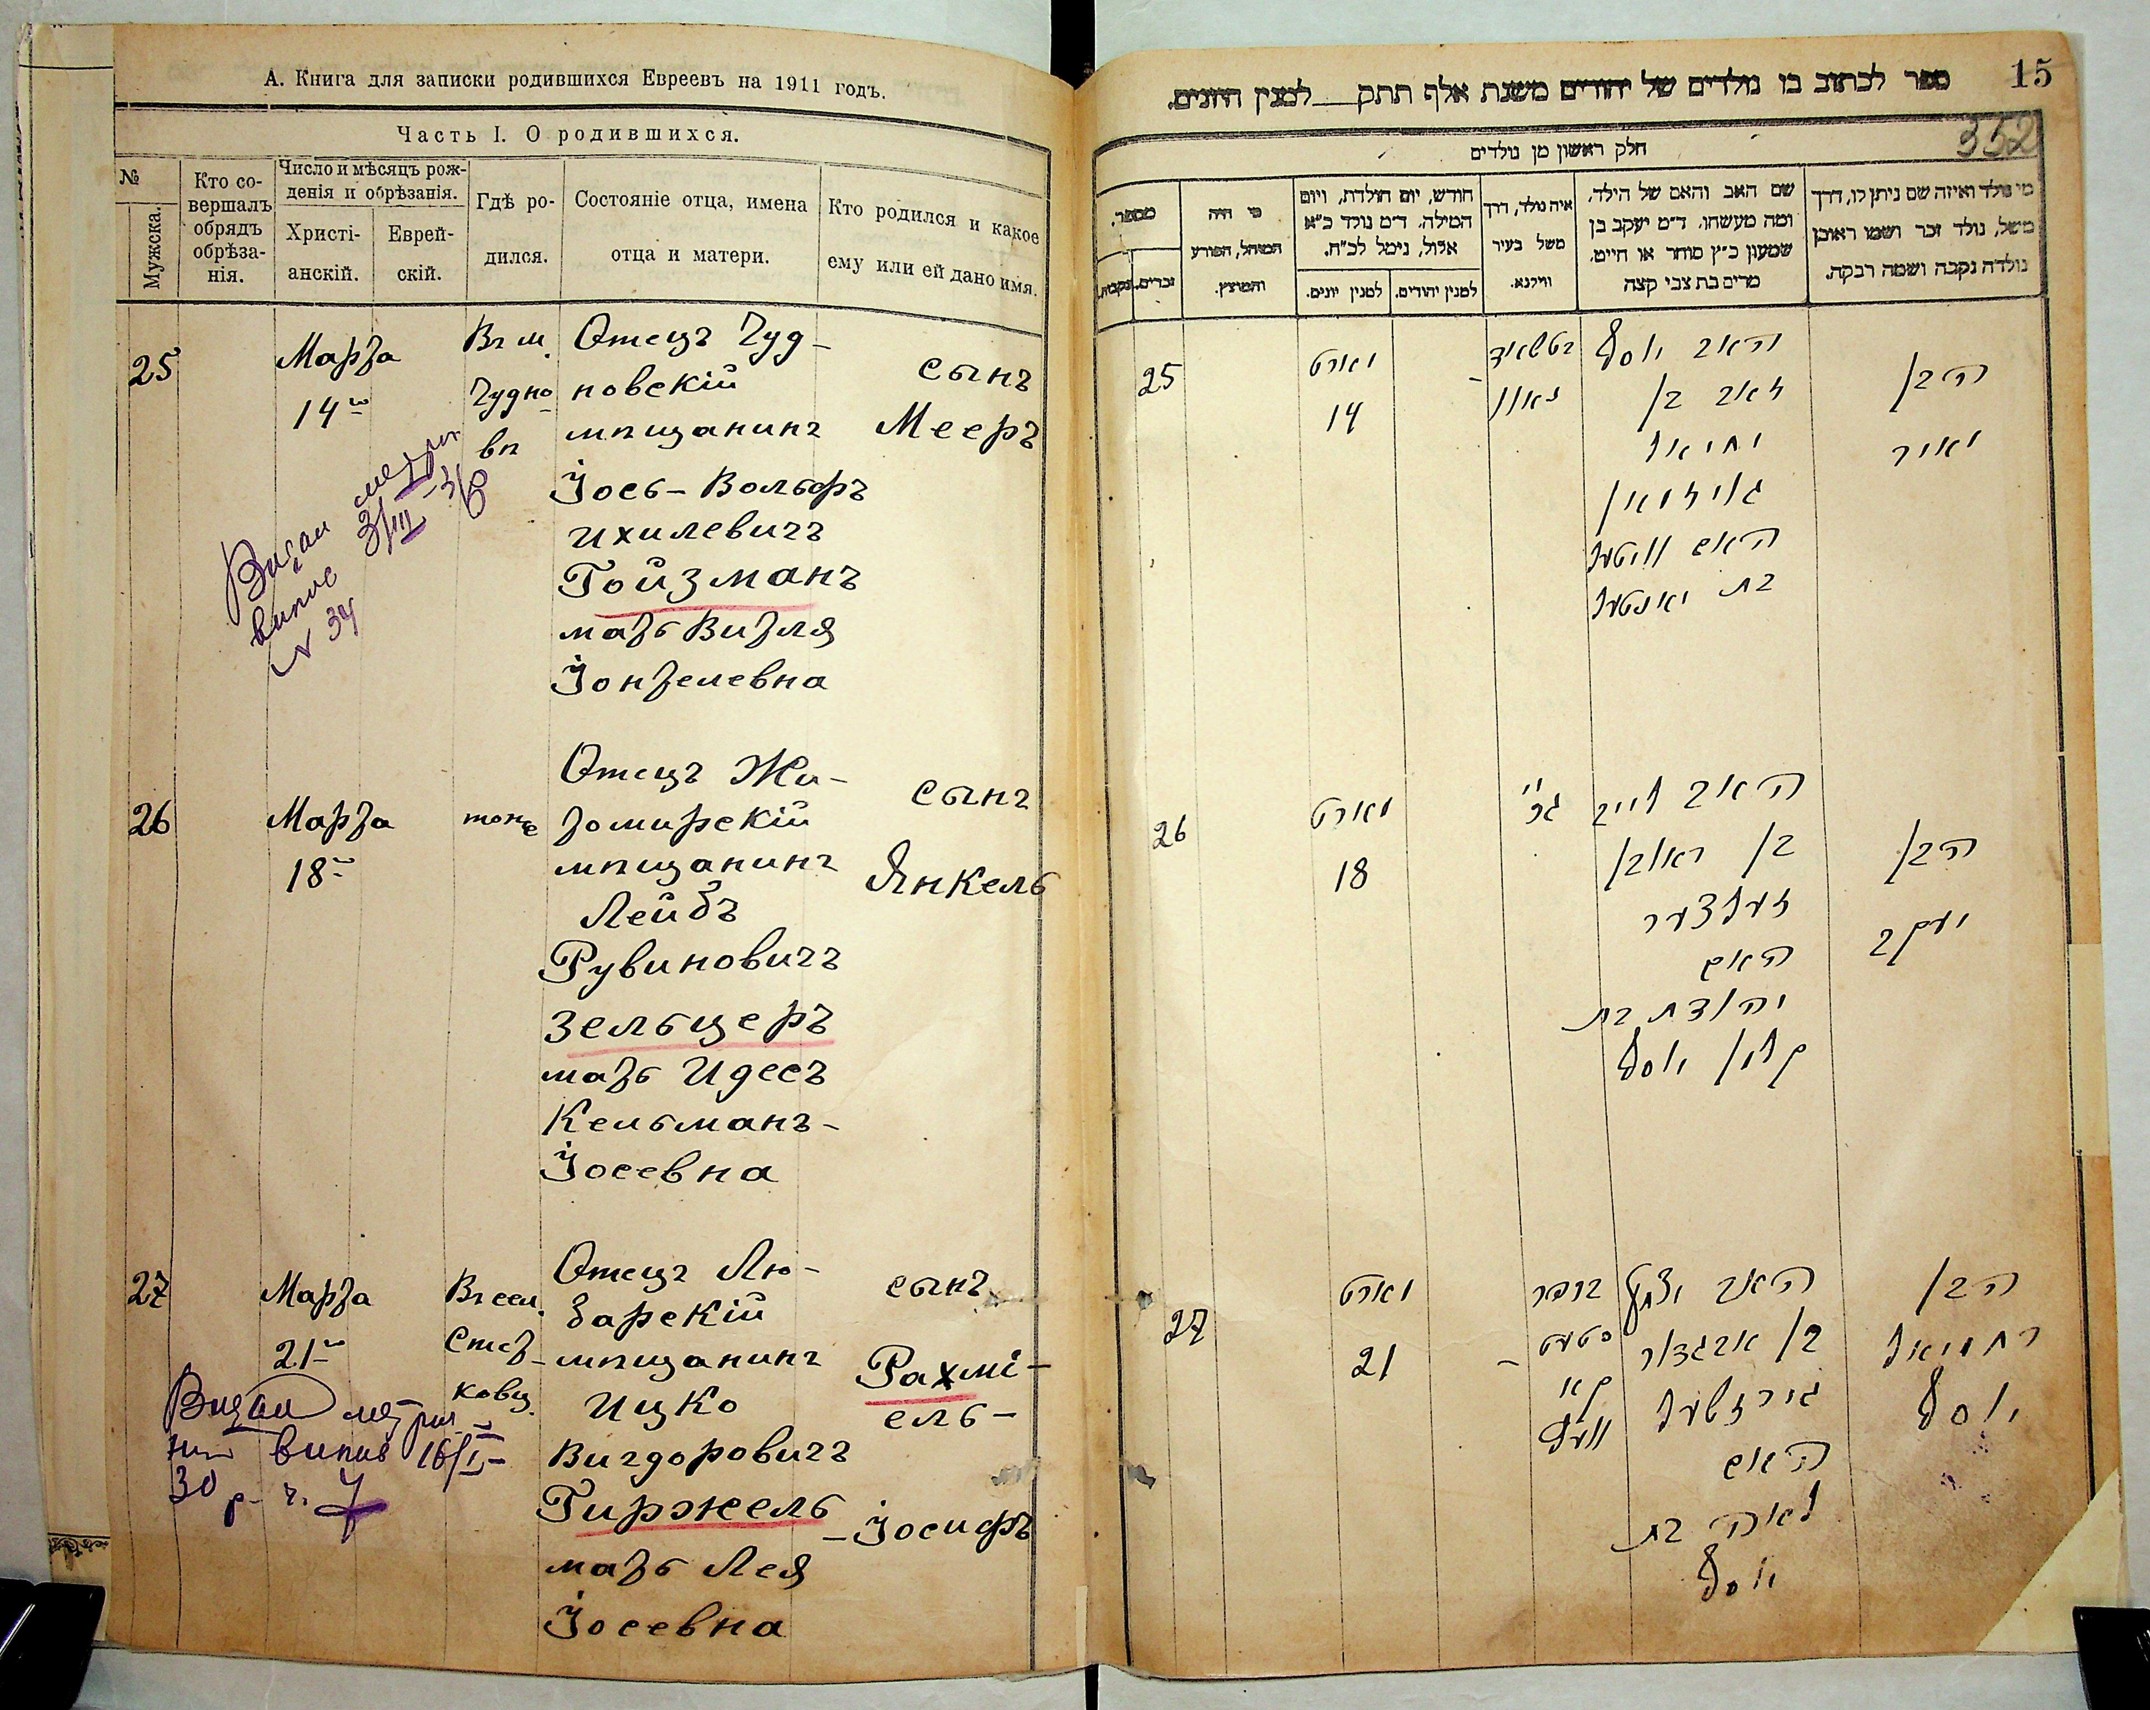 А. Книга для записки родившихся Евреевъ на 1911 годъ.
Часть I. О родившихся.
№
Мужска.
Кто со-
вершалъ
обрядъ
обрѣза-
нія.
Число и мѣсяцъ рож-
денія и обрѣзанія.
Христі-
анскій.
Еврей-
скій.
Гдѣ ро-
дился.
Состояніе отца, имена
отца и матери.
Кто родился и какое
ему или ей дано имя.
25
Марта
14го
Въ м.
Чудно-
вѣ
Отецъ Чуд-
новскій
мѣщанинъ
Іось-Вольфъ
Ихилевичъ
Гойзманъ
мать Витля
Іонтелевна
сынъ
Мееръ
Видан
випис
№ 34
26
Марта
18го
тоже
Отецъ Жи-
томирскій
мѣщанинъ
Лейбъ
Рувиновичъ
Зельцеръ
мать Идесъ
Кельманъ-
Іосевна
сынъ
Янкель
27
Марта
21го
Въ сел.
Стет-
ковц.
Отецъ Лю-
барскій
мѣщанинъ
Ицко
Вигдоровичъ
Гиржель
мать Лея
Іосевна
сынъ
Рахмі-
ель-
-Іосифъ
Видан
випис 16/I-
30 р. ч. 7
15
ספר לכתוב בו נולדים של יהודים משנת אלף תתק למנין היונים.
352
חלק ראשון מן נולדים
מספר.
זכרים.
נקבות.
מי היה
המוהל, הפורע
והמוצץ.
חודש, יום הולדת, ויום
המילה. ד״מ נולד כ״א
אלול, נימל לכ״ח.
למנין יונים.
למנין יהודים.
איה נולד, דרך
משל בעיר
ווילנא.
שם האב והאם של הילד,
ומה מעשהו. ד״מ יעקב בן
שמעון כ״ץ סוחר או חייט.
מרים בת צבי קצה
מי נולד ואיזה שם ניתן לו, דרך
משל, נולד זכר ושמו ראובן
נולדה נקבה ושמה רבקה.
25
מארט
14
האב יוסף
זאב בן
יחיאל
גויזמאן
האם וויטעל
בת יאנטעל
הבן
מאיר
26
מארט
18
האב לייב
בן ראובן
זעלצער
האם
יהודת בת
קלמן יוסף
הבן
יעקב
27
מארט
21
בכפר
סטעט-
קא
וועץ
האב יצחק
בן אביגדור
גירזשעל
האם
לאה בת
יוסף
הבן
רחמיאל
יוסף